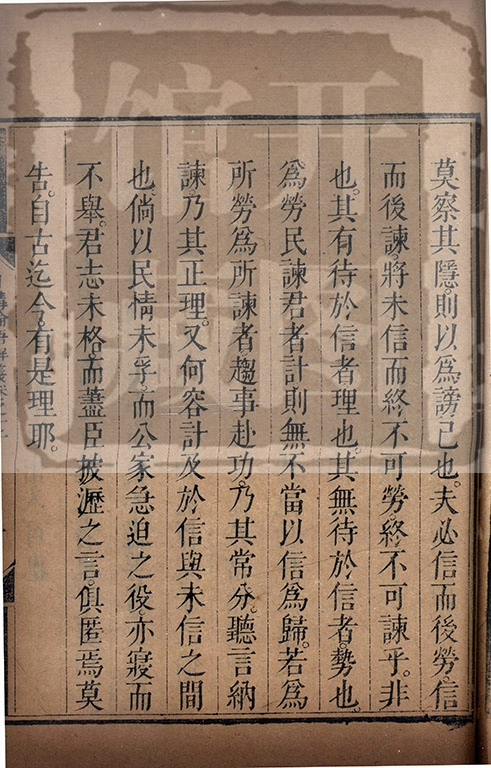 莫察其隱。則以爲謗己也。夫必信而後勞。信
而後諫。將未信而終不可勞。終不可諫乎。非
也。其有待於信者。理也。其無待於信者。勢也。
爲勞民諫君者計。則無不當以信爲歸。若爲
所勞爲所諫者。趨事赴功。乃其常分。聽言納
諫。乃其正理。又何容計及於信與未信之間
也。倘以民情未孚。而公家急迫之役。亦寢而
不舉。君志未格。而藎臣披瀝之言。俱匿焉莫
告。自古迄今。有是理耶。